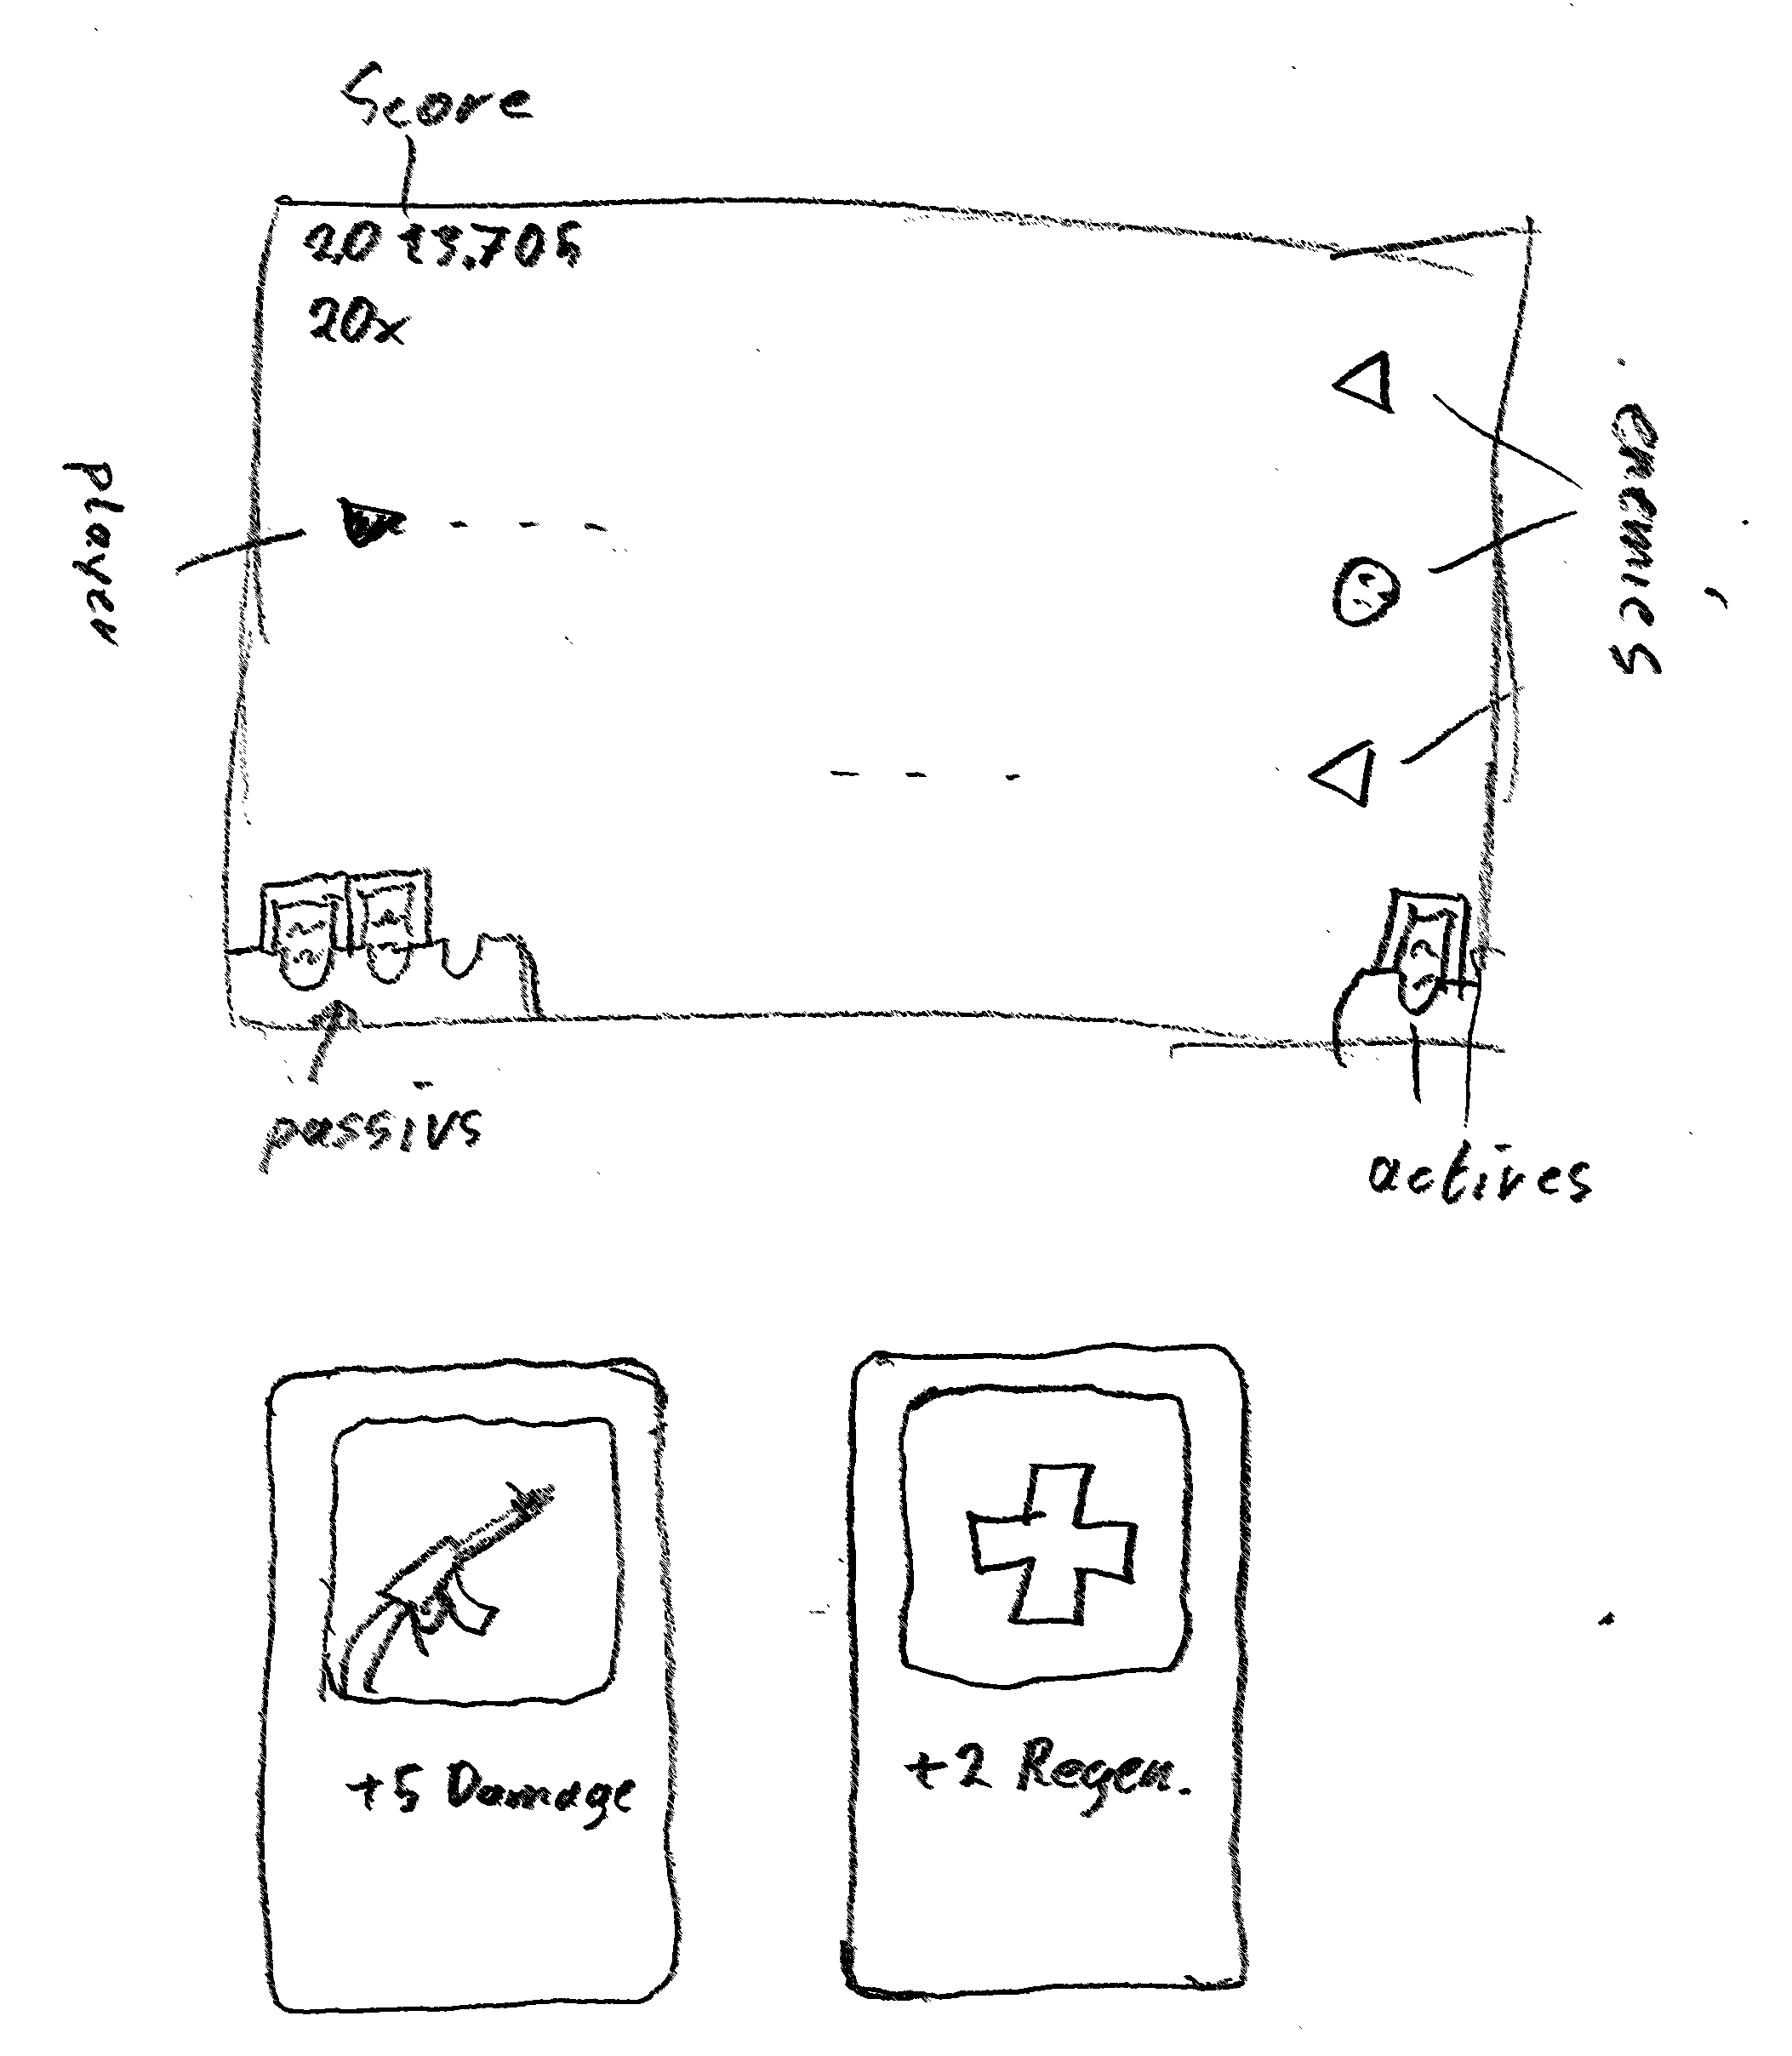 Score
20x
player
enemies
passivs
actives
+5 Damage
+2 Regen.